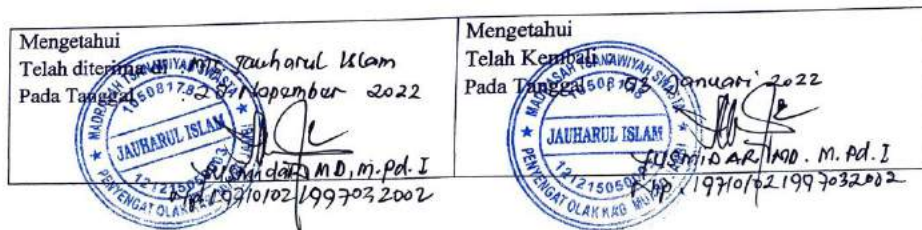 Mengetahui
Telah diterima di : MTs Jauharul Islam
Pada Tanggal : 2 Nopember 2022
MADRASAH TSANAWIYAH SWASTA
JAUHARUL ISLAM
PENYENGAT OLAK KAB
MD, M.Pd.I
197101021997032002
Mengetahui
Telah Kembali
Pada Tanggal Januari 2022
MADRASAH TSANAWIYAH SWASTA
JAUHARUL ISLAM
PENYENGAT OLAK KAB
YUSMIDAR MD. M.Pd.I
197101021997032002